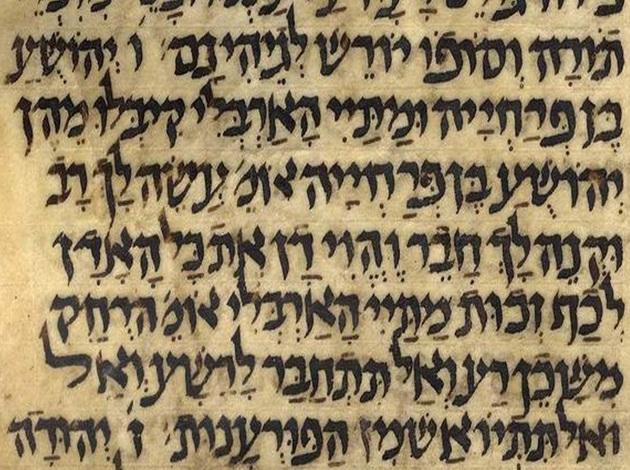 תורה וסופו יורש לגיהינם ו יהושע
בן פרחייה ומתיי הארבלי קיבלו מהן
יהושע בן פרחייה אומ' עשה לך רב
וקנה לך חבר והוי דן את כל האדן
לכף זכות מתיי הארבלי אומ' הרחק
משכן רע ואל תתחבר לרשע ואל
ואל תתיואש מין הפורענות ז יהודה